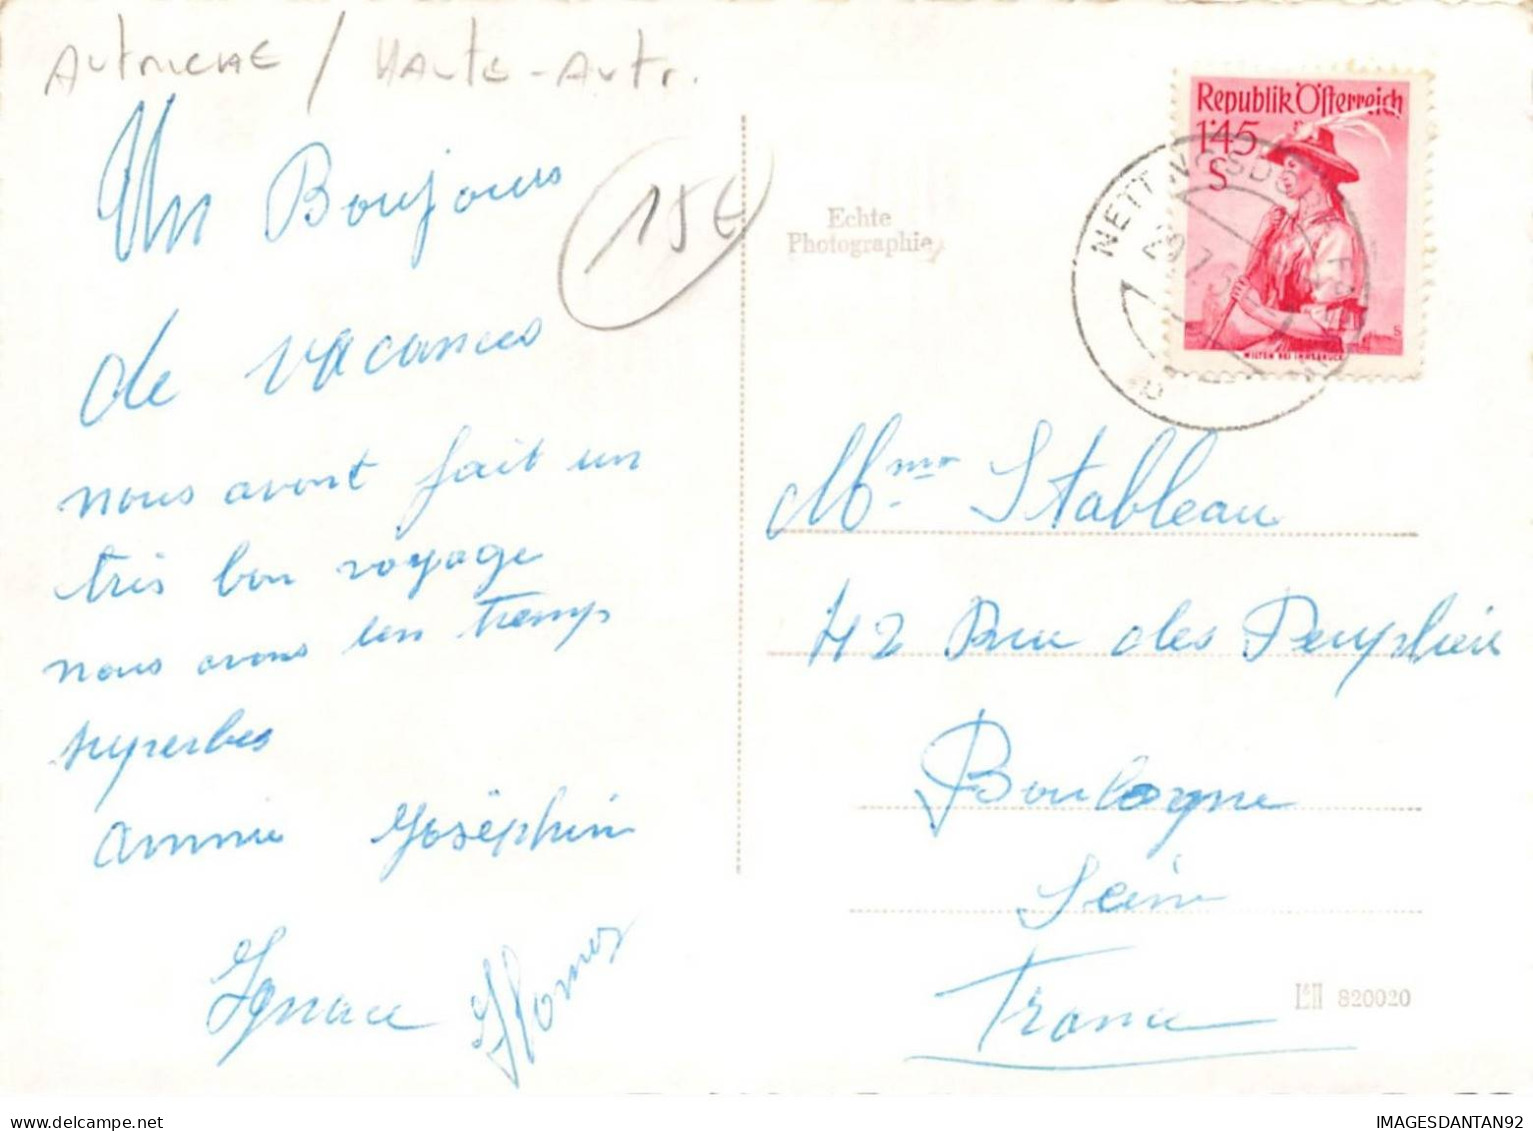 AUTRICHE / HAUTE-AUTr.
Un Bonjour
15€
de vacances
nous avont fait un
très bon voyage
nous avons un tremp
superbes
annie Joséphine
Ignace
Echte
Photographie
Republik Österreich
1'45
S
WILTEN BEI INNSBRUCK
NETTINGSDO
Mme Stableau
42 Rue des Peuplier
Boulogne
Seine
France
820020
IMAGESDANTAN92